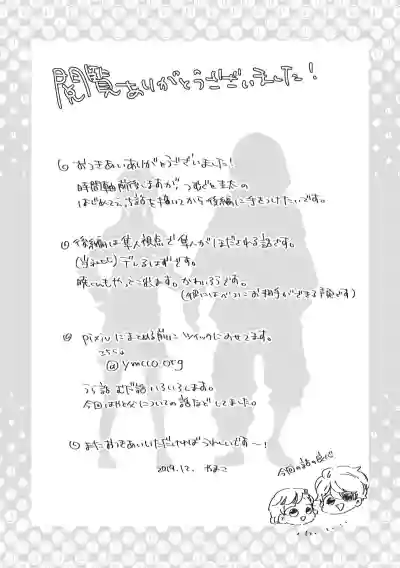 閲覧ありがとうございました!
おつきあいありがとうございました!
時間軸前後しますが、つぐと圭太の
はじめて の話を描いてから後編に手をつけたいです。
後編は隼人視点で隼人がほだされる話です。
(当社比)デレるはずです。
やっと出ます。かわいそうです。
pixivにまとめる前にツイッタにのせてます。
こちら
@ymcco_org
うら話 むだ話 いろいろします。
今回は についての話などしてました。
またおつきあいいただければうれしいです〜!
2019.12. やまこ
今回の話の